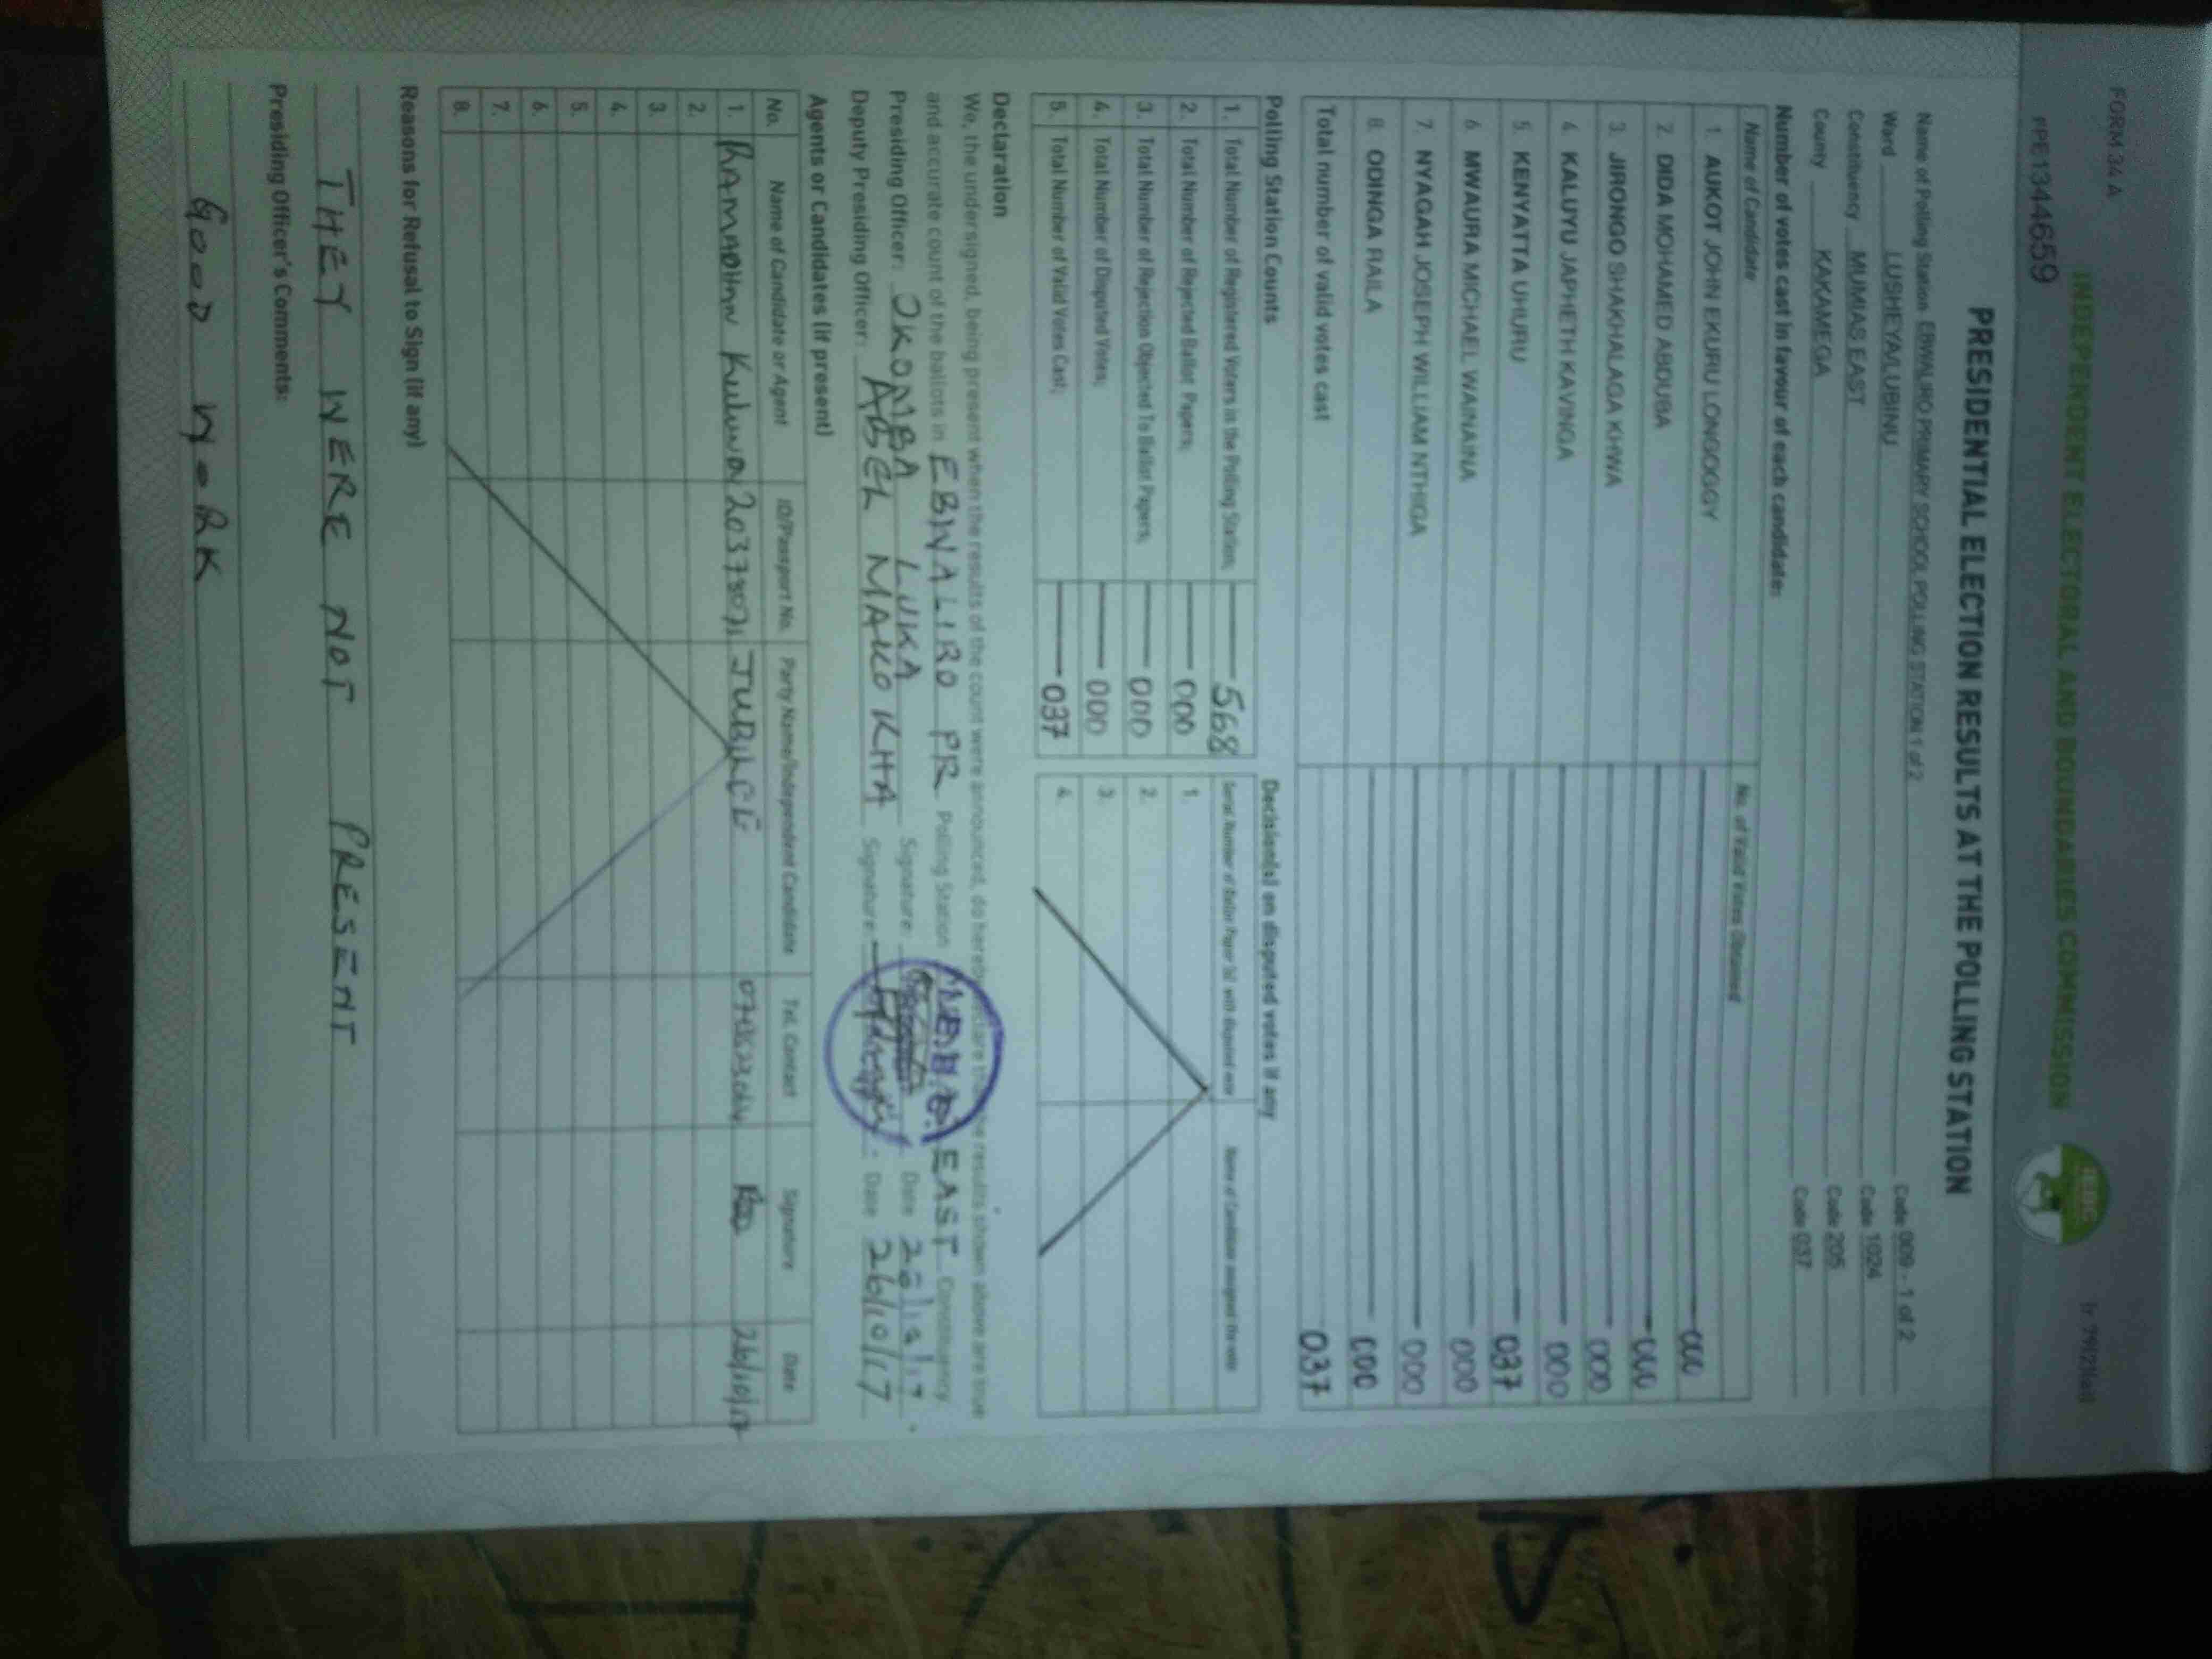 FORM 34 A
INDEPENDENT ELECTORAL AND BOUNDARIES COMMISSION
PPE1344659
IEBC
PRESIDENTIAL ELECTION RESULTS AT THE POLLING STATION
Name of Polling Station EBWALIRO PRIMARY SCHOOL POLLING STATION 1 of 2 Code 009 - 1 of 2
Ward LUSHEYA/LUBINU Code 1024
Constituency MUMIAS EAST Code 205
County KAKAMEGA Code 037
Number of votes cast in favour of each candidate:
Name of Candidate No. of Valid Votes Obtained
1. AUKOT JOHN EKURU LONGOGGY 000
2. DIDA MOHAMED ABDUBA 000
3. JIRONGO SHAKHALAGA KHWA 000
4. KALUYU JAPHETH KAVINGA 000
5. KENYATTA UHURU 037
6. MWAURA MICHAEL WAINAINA 000
7. NYAGAH JOSEPH WILLIAM NTHIGA 000
8. ODINGA RAILA 000
Total number of valid votes cast 037
Polling Station Counts Decision(s) on disputed votes if any
1. Total Number of Registered Voters in the Polling Station; 568
2. Total Number of Rejected Ballot Papers; 000
3. Total Number of Rejection Objected To Ballot Papers; 000
4. Total Number of Disputed Votes; 000
5. Total Number of Valid Votes Cast; 037
Serial Number of Ballot Paper (s) with disputed vote Name of Candidate assigned the vote
1.
2.
3.
4.
Declaration
We, the undersigned, being present when the results of the count were announced, do hereby declare that the results shown above are true
and accurate count of the ballots in EBWALIRO PR Polling Station EAST Constituency.
Presiding Officer: OKOMBA LUKA Signature Date 26/10/17
Deputy Presiding Officer: ABEL MAKOKHA Signature Date 26/10/17
Agents or Candidates (if present)
No. Name of Candidate or Agent ID/Passport No. Party Name/Independent Candidate Tel. Contact Signature Date
1. JUBILEE 26/10/17
2.
3.
4.
5.
6.
7.
8.
Reasons for Refusal to Sign (if any)
THEY WERE NOT PRESENT
Presiding Officer's Comments:
GOOD WORK